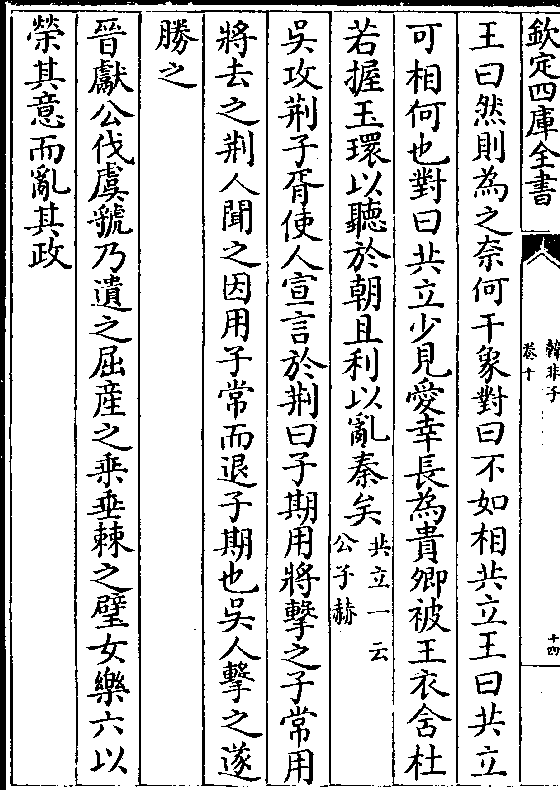 欽定四庫全書
韓非子
卷十
十四
王曰然則為之奈何干象對曰不如相共立王曰共立
可相何也對曰共立少見愛幸長為貴卿被王衣含杜
若握玉環以聽於朝且利以亂秦矣共立一云公子赫
吳攻荆子胥使人宣言於荆曰子期用將擊之子常用
將去之荆人聞之因用子常而退子期也吳人擊之遂
勝之
晉獻公伐虞虢乃遺之屈産之乗垂棘之璧女樂六以
榮其意而亂其政